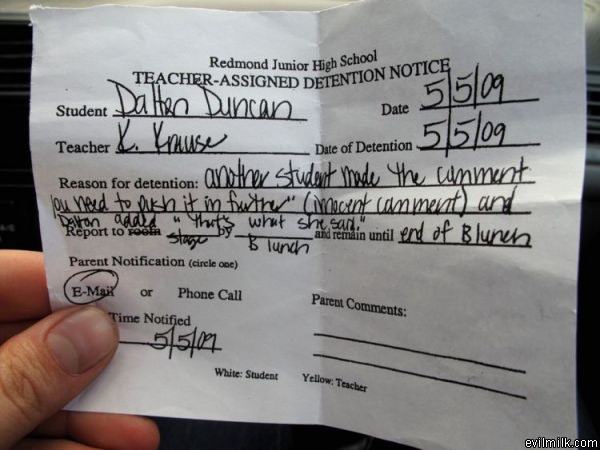 Redmond Junior High School
TEACHER-ASSIGNED DETENTION NOTICE
Student Dalton Duncan Date 5/5/09
Teacher K. Krause Date of Detention 5/5/09
Reason for detention: another student made the comment
"you need to push it in further" (innocent comment) and
Dalton added "that's what she said."
Report to room stage by B lunch and remain until end of B lunch
Parent Notification (circle one)
E-Mail or Phone Call Parent Comments:
Time Notified
5/5/09
White: Student Yellow: Teacher
evilmilk.com